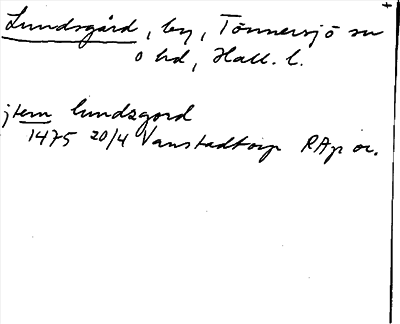 +
Lundsgård, by, Tönnersjö sn
o hd, Hall. l.
jtem lundzgord
1475 20/4 Vanstadtorp RAp or.